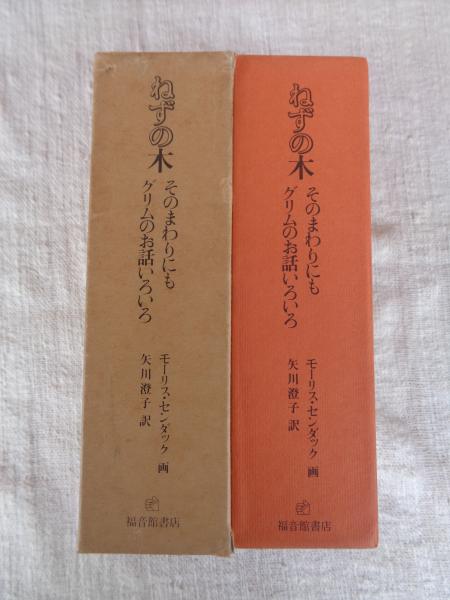 ねずの木
そのまわりにも
グリムのお話いろいろ
モーリス・センダック 画
矢川澄子 訳
福音館書店
ねずの木
そのまわりにも
グリムのお話いろいろ
モーリス・センダック 画
矢川澄子 訳
福音館書店